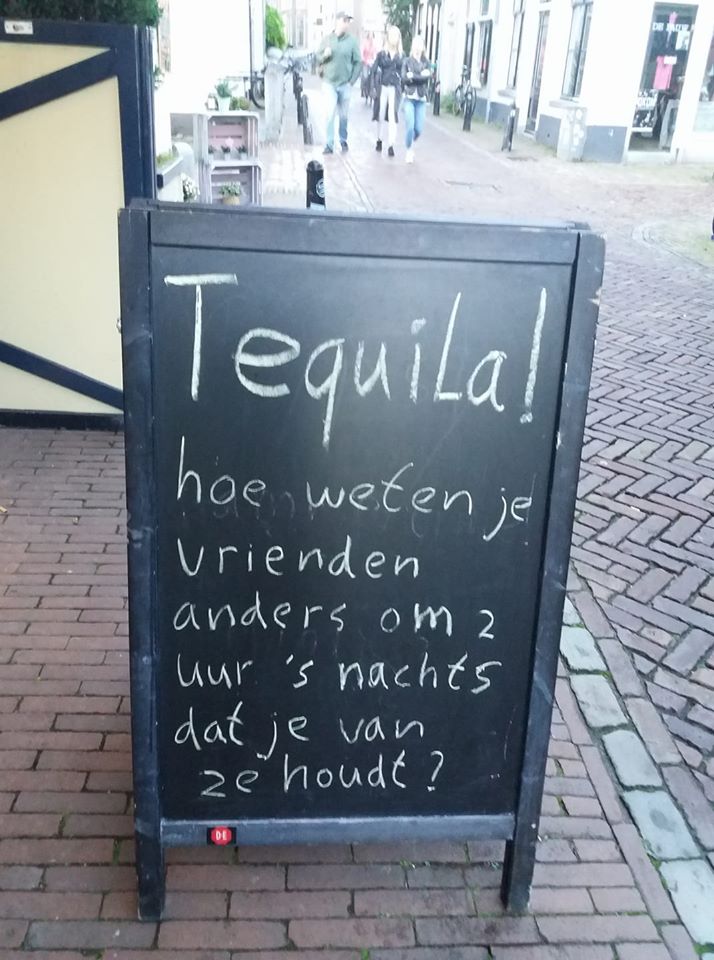 Tequila!
hoe weten je
vrienden
anders om 2
uur 's nachts
dat je van
ze houdt?
DE